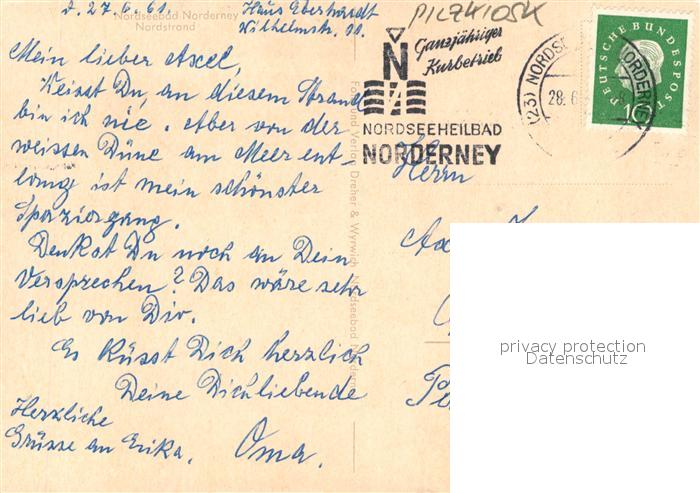 d. 27.6.61. Haus Eberhardt
Wilhelmstr. 11.
Nordseebad Norderney
Nordstrand
PILZKIOSK
Mein lieber Axel,
Weisst Du, an diesem Strand
bin ich nie. Aber von der
weissen Düne am Meer ent-
lang ist mein schönster
Spaziergang.
Denkst Du noch an Dein
Versprechen? Das wäre sehr
lieb von Dir.
Es küsst Dich herzlich
Deine Dichliebende
Oma.
Herzliche
Grüsse an Erika.
Foto und Verlag Dreher & Wyrwich, Nordseebad Norderney
Ganzjähriger
Kurbetrieb
N
NORDSEEHEILBAD
NORDERNEY
(23) NORDSE
NORDERNEY
28.6
DEUTSCHE BUNDESPOST
Herrn
privacy protection
Datenschutz